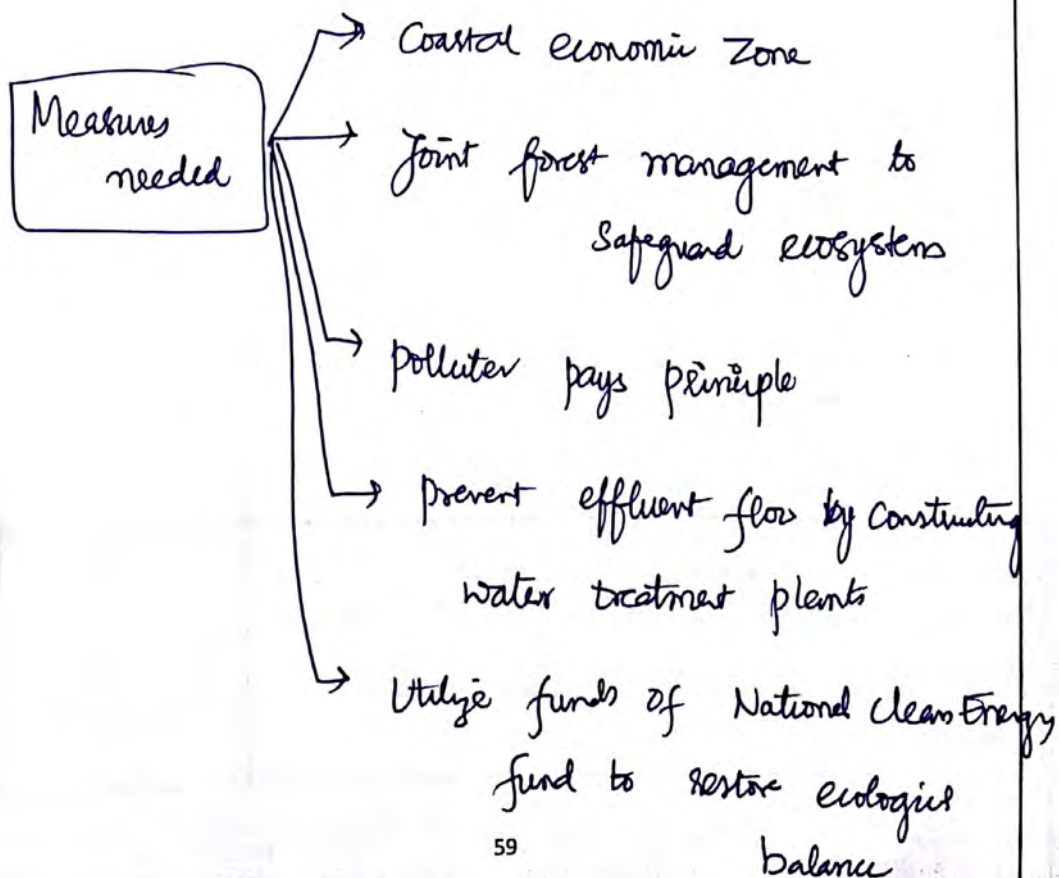 Coastal economic Zone
Measures
needed
Joint forest management to
Safeguard ecosystems
polluter pays principle
prevent effluent flow by Constructing
water treatment plants
Utilize funds of National Clean Energy
fund to restore ecological
balance
59